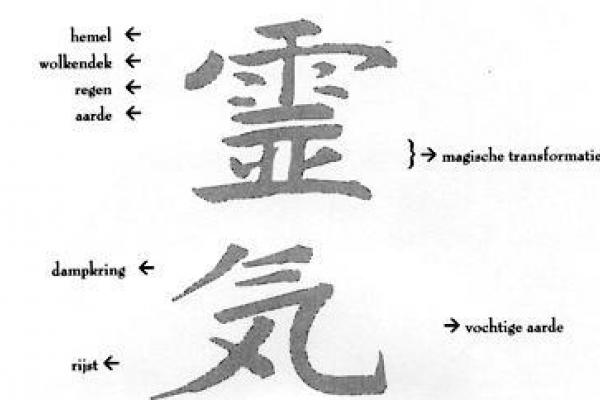 hemel ←
wolkendek ←
regen ←
aarde ←
霊
} → magische transformatie
dampkring ←
気
→ vochtige aarde
rijst ←